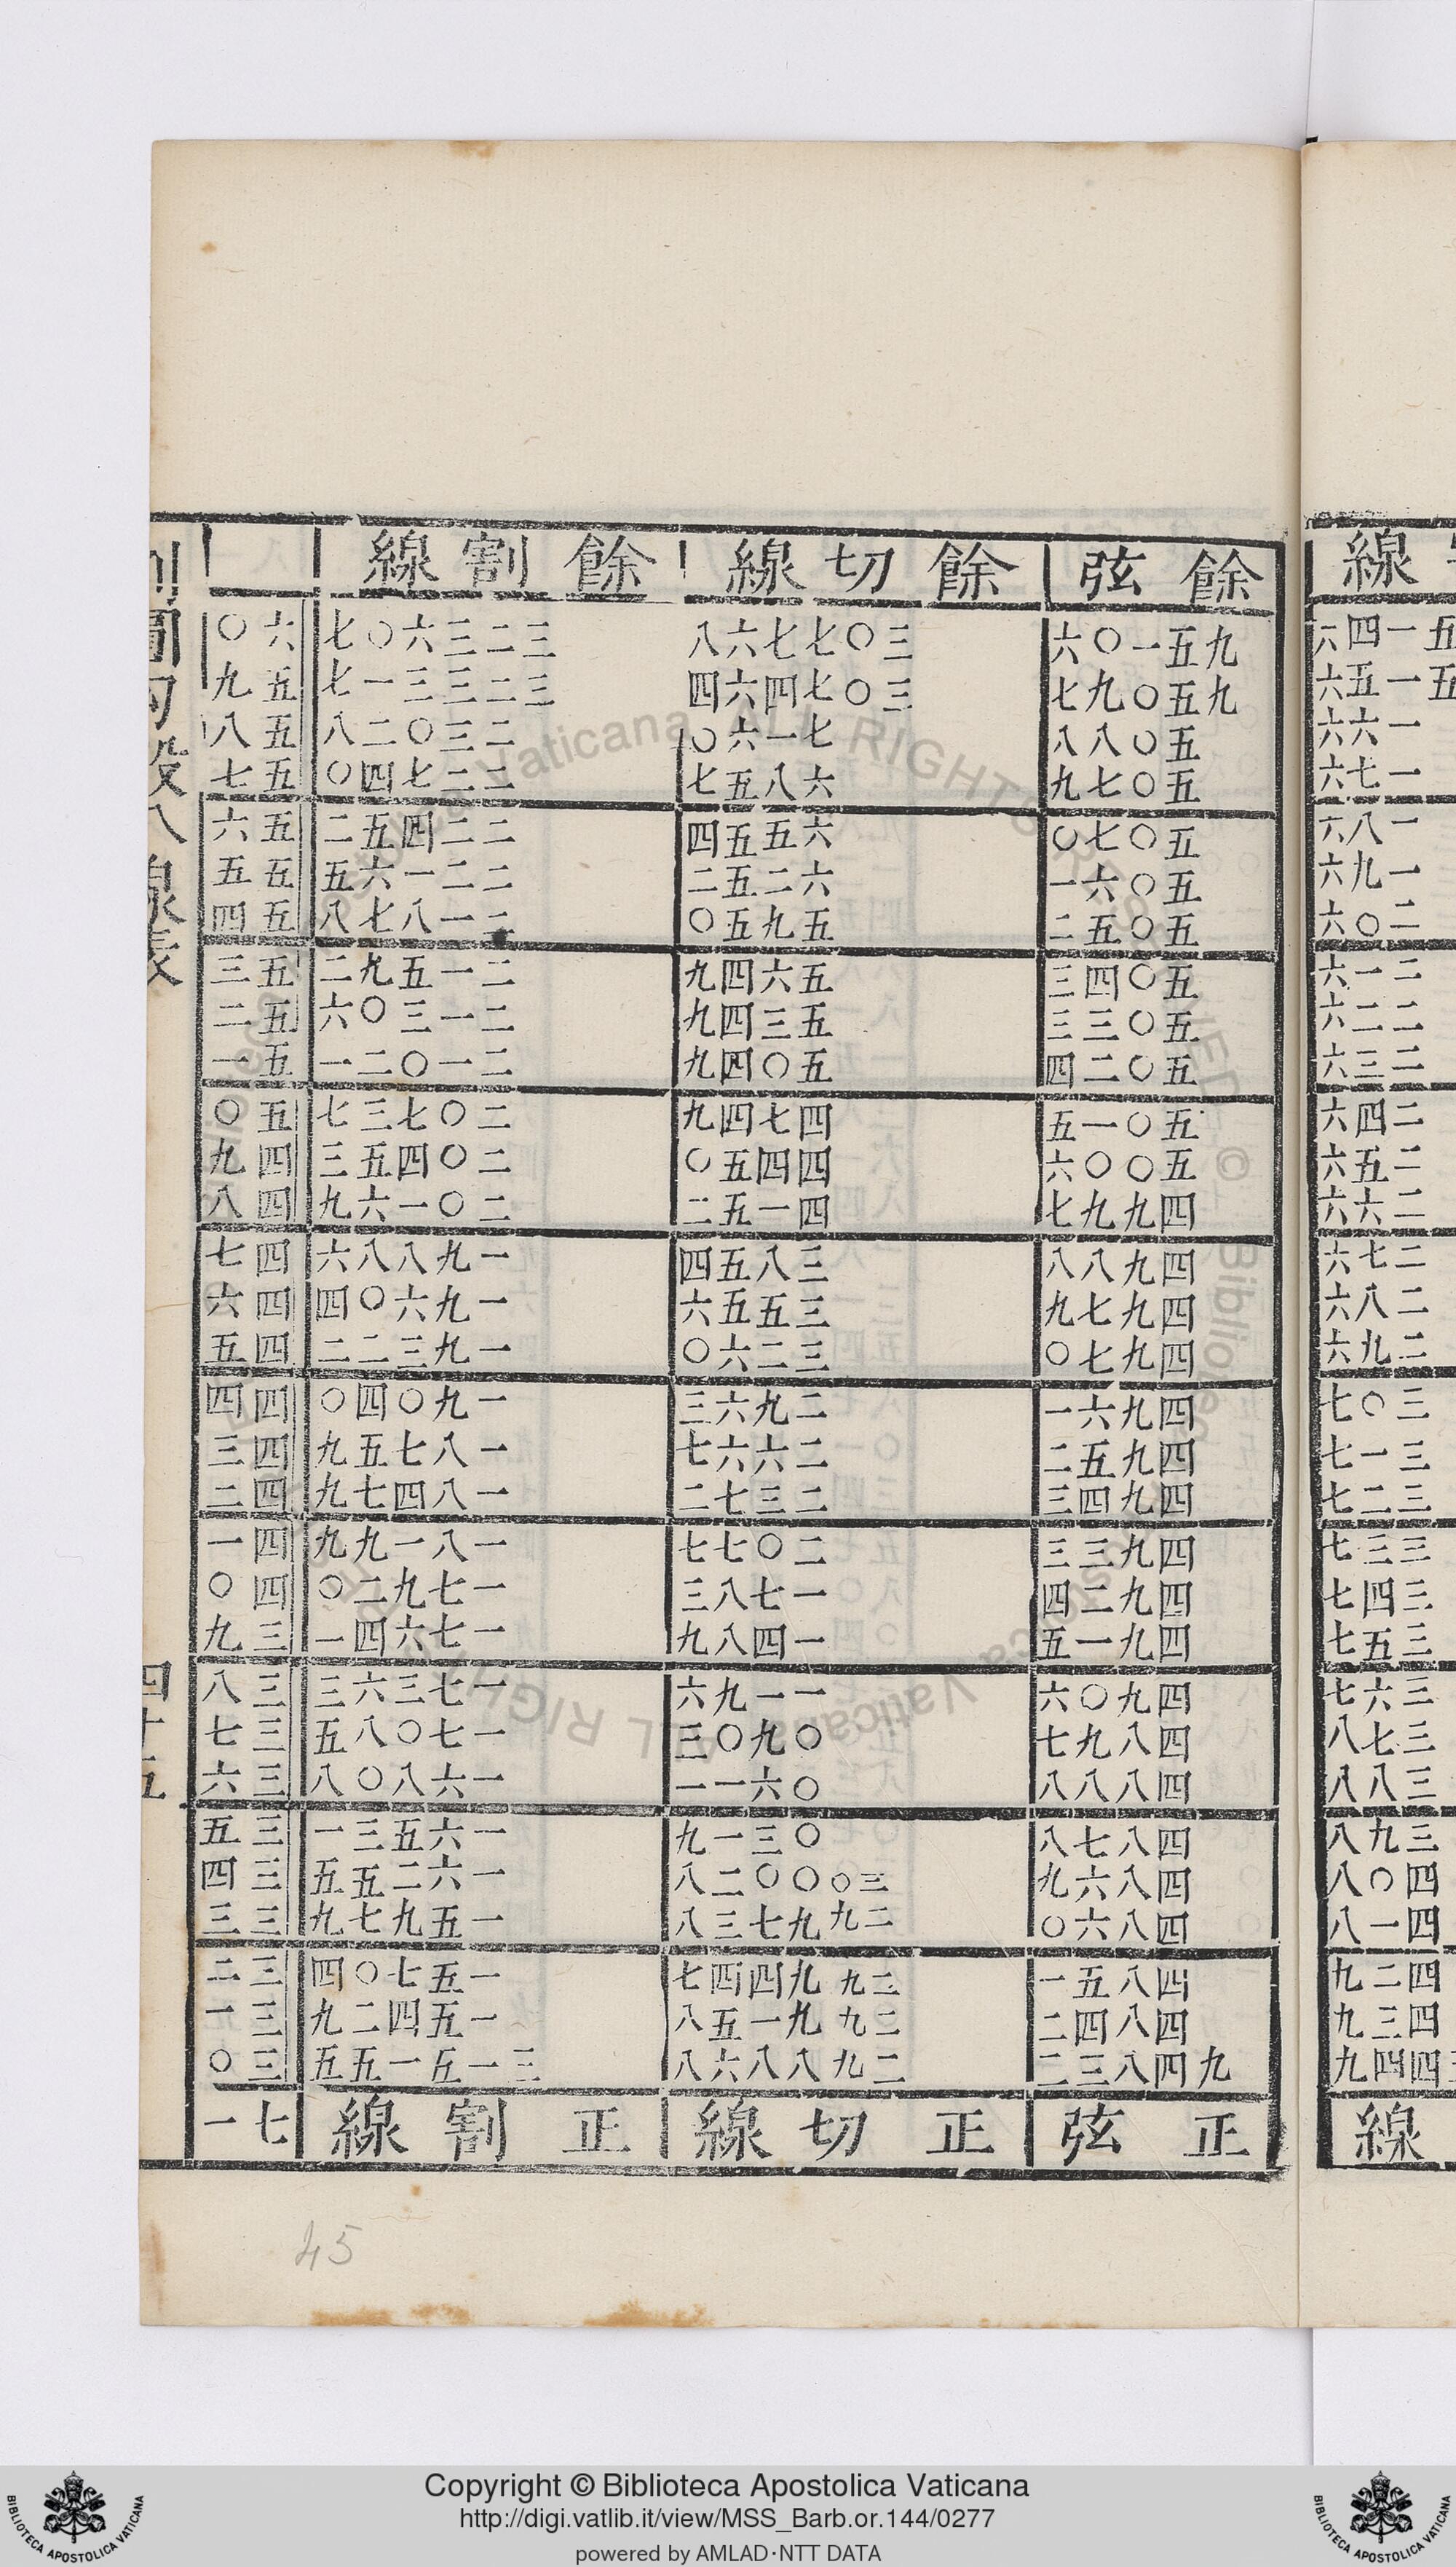 線
五一四六
五一五六
一六六
一七六
一八六
一九六
二〇六
二一六
二二六
二三六
二四六
二五六
二六六
二七六
二八六
二九六
三〇七
三一七
三二七
三三七
三四七
三五七
三六七
三七八
三八八
三九八
四〇八
四一八
四二九
四三九
四四九
線
餘弦 餘切線 餘割線
九五一〇六 三〇七七六八 三二三六〇七 六〇
九五〇九七 三〇七四六四 三二三三一七 五九
五〇八八 七一六〇 二三〇二八 五八
五〇七九 六八五七 二二七四〇 五七
五〇七〇 六五五四 二二四五二 五六
五〇六一 六二五二 二二一六五 五五
五〇五二 五九五〇 二一八七八 五四
五〇四三 五六四九 二一五九二 五三
五〇三三 五三四九 二一三〇六 五二
五〇二四 五〇四九 二一〇二一 五一
五〇一五 四七四九 二〇七三七 五〇
五〇〇六 四四五〇 二〇四五三 四九
四九九七 四一五二 二〇一六九 四八
四九八八 三八五四 一九八八六 四七
四九七九 三五五六 一九六〇四 四六
四九七〇 三二六〇 一九三二二 四五
四九六一 二九六三 一九〇四〇 四四
四九五二 二六六七 一八七五九 四三
四九四三 二三七二 一八四七九 四二
四九三三 二〇七七 一八一九九 四一
四九二四 一七八三 一七九二〇 四〇
四九一五 一四八九 一七六四一 三九
四九〇六 一一九六 一七三六三 三八
四八九七 〇九〇三 一七〇八五 三七
四八八八 〇六一一 一六八〇八 三六
四八七八 〇三一九 一六五三一 三五
四八六九 三〇〇〇二八 一六二五五 三四
四八六〇 二九九七三八 一五九七九 三三
四八五一 二九九四四七 一五七〇四 三二
四八四二 二九九一五八 一五四二九 三一
九四八三二 二九八八六八 三一五一五五 三〇
正弦 正切線 正割線 七一
八線表
四十五
45
Copyright © Biblioteca Apostolica Vaticana
http://digi.vatlib.it/view/MSS_Barb.or.144/0277
powered by AMLAD·NTT DATA
BIBLIOTECA APOSTOLICA VATICANA
BIBLIOTECA APOSTOLICA VATICANA